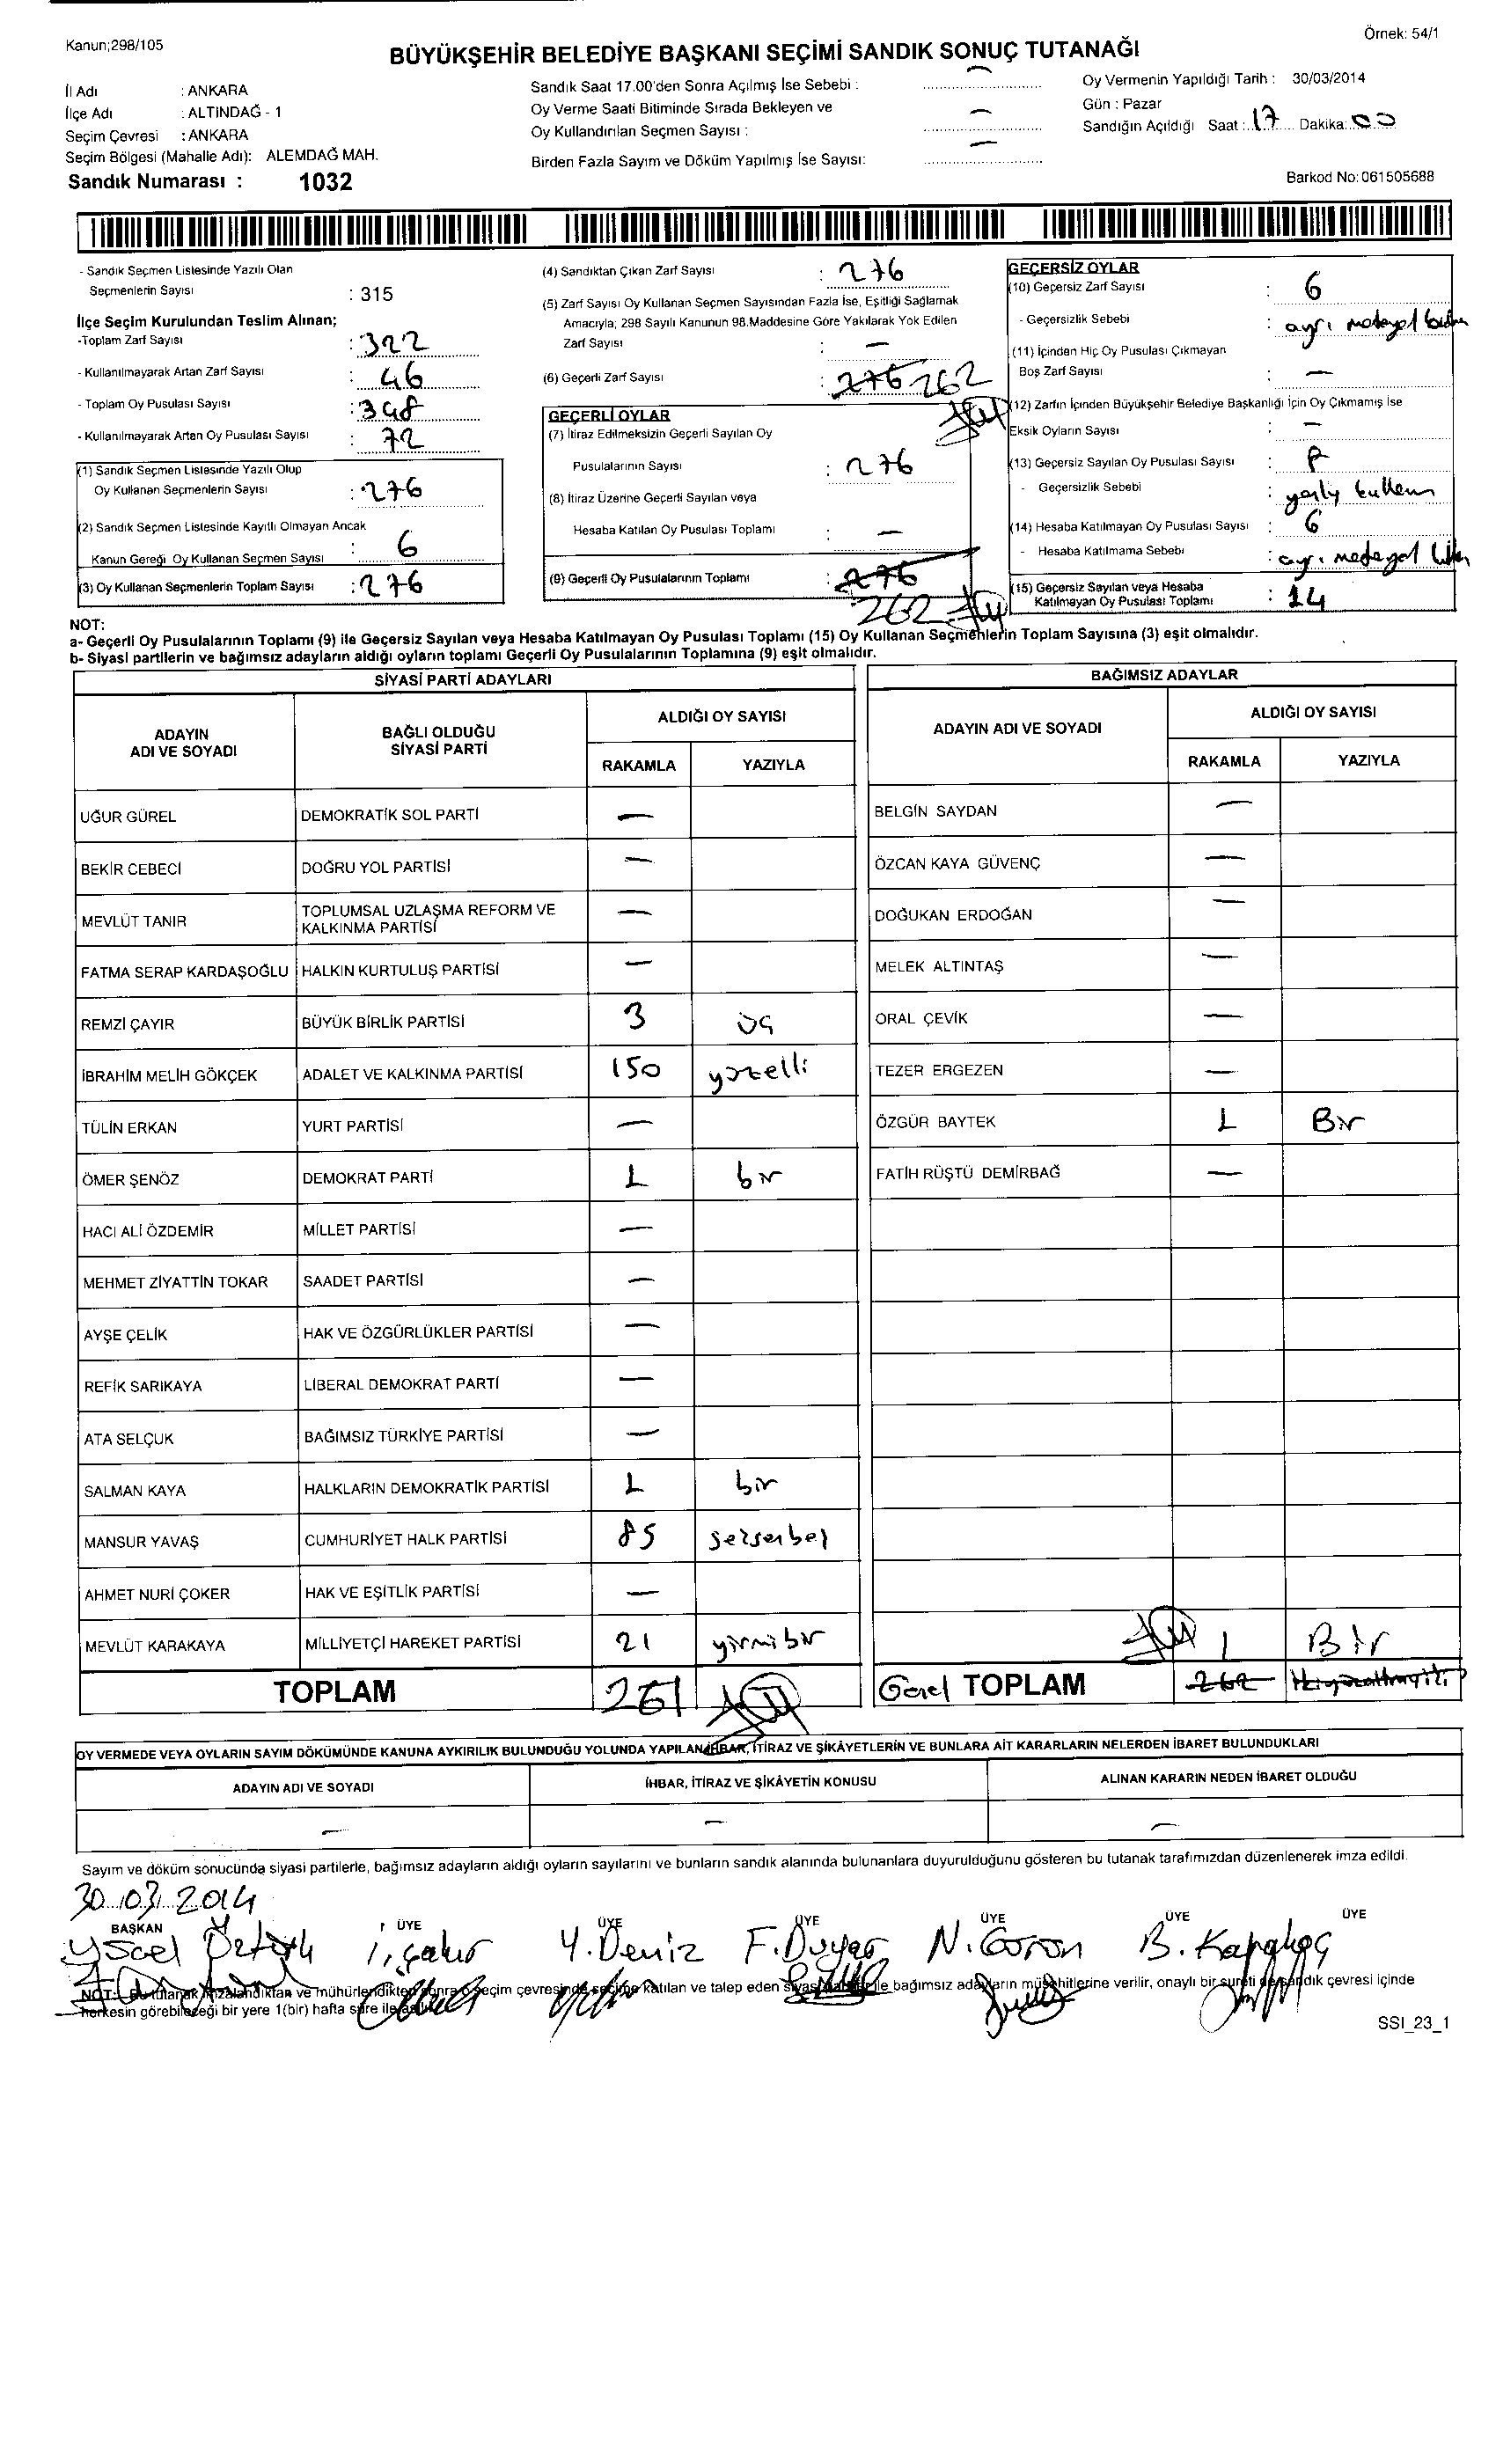 Kanun;298/105
Örnek: 54/1
BÜYÜKŞEHİR BELEDİYE BAŞKANI SEÇİMİ SANDIK SONUÇ TUTANAĞI
İl Adı : ANKARA
İlçe Adı : ALTINDAĞ - 1
Seçim Çevresi : ANKARA
Seçim Bölgesi (Mahalle Adı): ALEMDAĞ MAH.
Sandık Numarası : 1032
Sandık Saat 17.00'den Sonra Açılmış İse Sebebi : —
Oy Verme Saati Bitiminde Sırada Bekleyen ve
Oy Kullandırılan Seçmen Sayısı : —
Birden Fazla Sayım ve Döküm Yapılmış İse Sayısı: —
Oy Vermenin Yapıldığı Tarih : 30/03/2014
Gün : Pazar
Sandığın Açıldığı Saat : 17 Dakika: 00
Barkod No: 061505688
- Sandık Seçmen Listesinde Yazılı Olan
Seçmenlerin Sayısı : 315
İlçe Seçim Kurulundan Teslim Alınan;
-Toplam Zarf Sayısı : 322
- Kullanılmayarak Artan Zarf Sayısı : 46
- Toplam Oy Pusulası Sayısı : 348
- Kullanılmayarak Artan Oy Pusulası Sayısı : 72
(1) Sandık Seçmen Listesinde Yazılı Olup
Oy Kullanan Seçmenlerin Sayısı : 276
(2) Sandık Seçmen Listesinde Kayıtlı Olmayan Ancak
Kanun Gereği Oy Kullanan Seçmen Sayısı : 6
(3) Oy Kullanan Seçmenlerin Toplam Sayısı : 276
(4) Sandıktan Çıkan Zarf Sayısı : 276
(5) Zarf Sayısı Oy Kullanan Seçmen Sayısından Fazla İse, Eşitliği Sağlamak
Amacıyla; 298 Sayılı Kanunun 98.Maddesine Göre Yakılarak Yok Edilen
Zarf Sayısı : —
(6) Geçerli Zarf Sayısı : 276 262
GEÇERLİ OYLAR
(7) İtiraz Edilmeksizin Geçerli Sayılan Oy
Pusulalarının Sayısı : 276
(8) İtiraz Üzerine Geçerli Sayılan veya
Hesaba Katılan Oy Pusulası Toplamı : —
(9) Geçerli Oy Pusulalarının Toplamı : 276
262
GEÇERSİZ OYLAR
(10) Geçersiz Zarf Sayısı : 6
- Geçersizlik Sebebi : ayrı
(11) İçinden Hiç Oy Pusulası Çıkmayan
Boş Zarf Sayısı : —
(12) Zarfın İçinden Büyükşehir Belediye Başkanlığı İçin Oy Çıkmamış İse
Eksik Oyların Sayısı : —
(13) Geçersiz Sayılan Oy Pusulası Sayısı : 8
- Geçersizlik Sebebi :
(14) Hesaba Katılmayan Oy Pusulası Sayısı : 6
- Hesaba Katılmama Sebebi :
(15) Geçersiz Sayılan veya Hesaba
Katılmayan Oy Pusulası Toplamı : 14
NOT:
a- Geçerli Oy Pusulalarının Toplamı (9) ile Geçersiz Sayılan veya Hesaba Katılmayan Oy Pusulası Toplamı (15) Oy Kullanan Seçmenlerin Toplam Sayısına (3) eşit olmalıdır.
b- Siyasi partilerin ve bağımsız adayların aldığı oyların toplamı Geçerli Oy Pusulalarının Toplamına (9) eşit olmalıdır.
SİYASİ PARTİ ADAYLARI
ADAYIN ADI VE SOYADI BAĞLI OLDUĞU SİYASİ PARTİ ALDIĞI OY SAYISI
RAKAMLA YAZIYLA
UĞUR GÜREL DEMOKRATİK SOL PARTİ —
BEKİR CEBECİ DOĞRU YOL PARTİSİ —
MEVLÜT TANIR TOPLUMSAL UZLAŞMA REFORM VE KALKINMA PARTİSİ —
FATMA SERAP KARDAŞOĞLU HALKIN KURTULUŞ PARTİSİ —
REMZİ ÇAYIR BÜYÜK BİRLİK PARTİSİ 3 üç
İBRAHİM MELİH GÖKÇEK ADALET VE KALKINMA PARTİSİ 150 yüzelli
TÜLİN ERKAN YURT PARTİSİ —
ÖMER ŞENÖZ DEMOKRAT PARTİ 1 bir
HACI ALİ ÖZDEMİR MİLLET PARTİSİ —
MEHMET ZİYATTİN TOKAR SAADET PARTİSİ —
AYŞE ÇELİK HAK VE ÖZGÜRLÜKLER PARTİSİ —
REFİK SARIKAYA LİBERAL DEMOKRAT PARTİ —
ATA SELÇUK BAĞIMSIZ TÜRKİYE PARTİSİ —
SALMAN KAYA HALKLARIN DEMOKRATİK PARTİSİ 1 bir
MANSUR YAVAŞ CUMHURİYET HALK PARTİSİ 85 seksenbeş
AHMET NURİ ÇOKER HAK VE EŞİTLİK PARTİSİ —
MEVLÜT KARAKAYA MİLLİYETÇİ HAREKET PARTİSİ 21 yirmibir
TOPLAM 261
BAĞIMSIZ ADAYLAR
ADAYIN ADI VE SOYADI ALDIĞI OY SAYISI
RAKAMLA YAZIYLA
BELGİN SAYDAN —
ÖZCAN KAYA GÜVENÇ —
DOĞUKAN ERDOĞAN —
MELEK ALTINTAŞ —
ORAL ÇEVİK —
TEZER ERGEZEN —
ÖZGÜR BAYTEK 1 Bir
FATİH RÜŞTÜ DEMİRBAĞ —
1 Bir
Genel TOPLAM 262
OY VERMEDE VEYA OYLARIN SAYIM DÖKÜMÜNDE KANUNA AYKIRILIK BULUNDUĞU YOLUNDA YAPILAN İHBAR, İTİRAZ VE ŞİKÂYETLERİN VE BUNLARA AİT KARARLARIN NELERDEN İBARET BULUNDUKLARI
ADAYIN ADI VE SOYADI İHBAR, İTİRAZ VE ŞİKÂYETİN KONUSU ALINAN KARARIN NEDEN İBARET OLDUĞU
— — —
Sayım ve döküm sonucunda siyasi partilerle, bağımsız adayların aldığı oyların sayılarını ve bunların sandık alanında bulunanlara duyurulduğunu gösteren bu tutanak tarafımızdan düzenlenerek imza edildi.
30/03/2014
BAŞKAN ÜYE ÜYE ÜYE ÜYE ÜYE ÜYE
Yücel Öztürk Y.Deniz F.Duyar N.Goron B.
NOT: Bu tutanak imzalandıktan ve mühürlendikten sonra o seçim çevresinde seçime katılan ve talep eden siyasi partiler ile bağımsız adayların müşahitlerine verilir, onaylı bir sureti de sandık çevresi içinde
herkesin görebileceği bir yere 1(bir) hafta süre ile
SSI_23_1